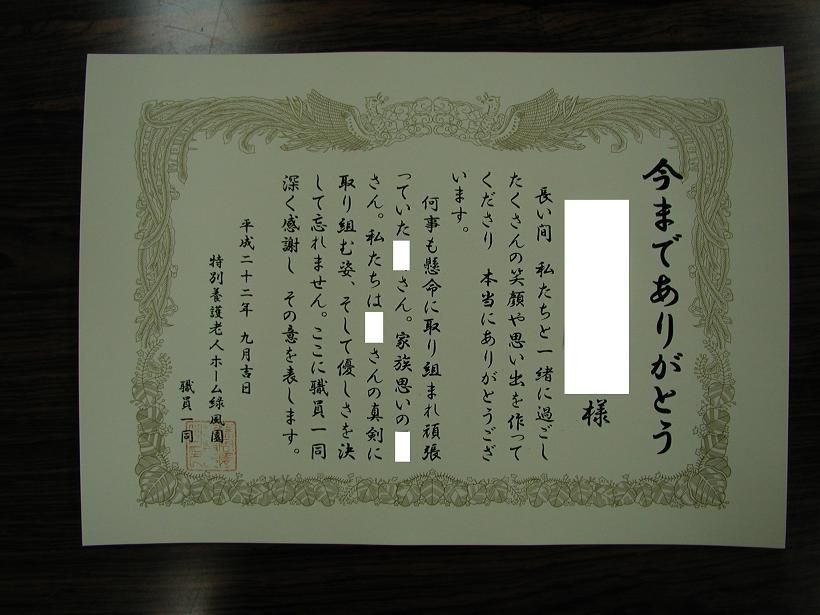 今までありがとう
様
長い間 私たちと一緒に過ごし
たくさんの笑顔や思い出を作って
くださり 本当にありがとうござ
います。
何事も懸命に取り組まれ頑張
っていた さん。家族思いの
さん。私たちは さんの真剣に
取り組む姿、そして優しさを決
して忘れません。ここに職員一同
深く感謝し その意を表します。
平成二十二年 九月吉日
特別養護老人ホーム緑風園
職員一同